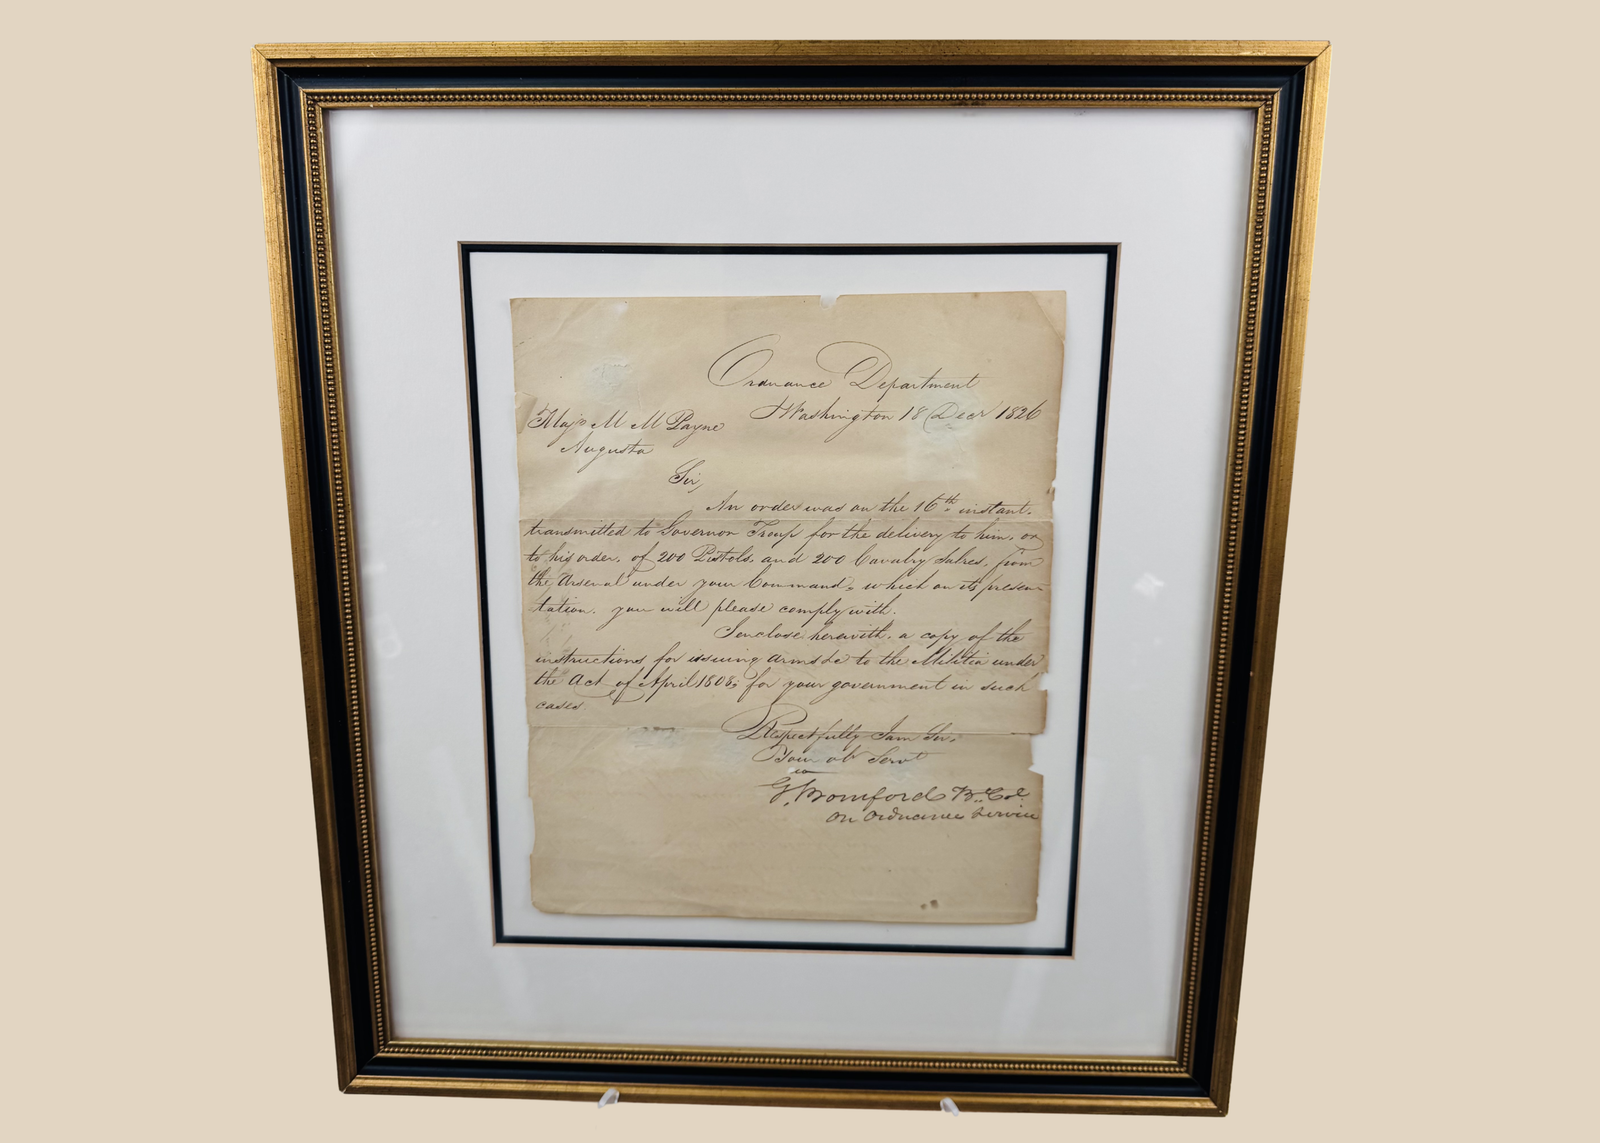 Ordnance Department
Washington 18 Decr 1826
Majr M M Payne
Augusta
Sir,
An order was on the 16th instant.
transmitted to Governor Troup for the delivery to him, or
to his order, of 200 Pistols, and 200 Cavalry Sabres, from
the Arsenal under your Command, which on its presen-
tation. you will please comply with.
I enclose herewith. a copy of the
instructions for issuing arms &c to the Militia under
the Act of April 1808, for your government in such
cases.
Respectfully I am Sir,
Your ob Servt
G. Bomford Bt Col
on Ordnance Service